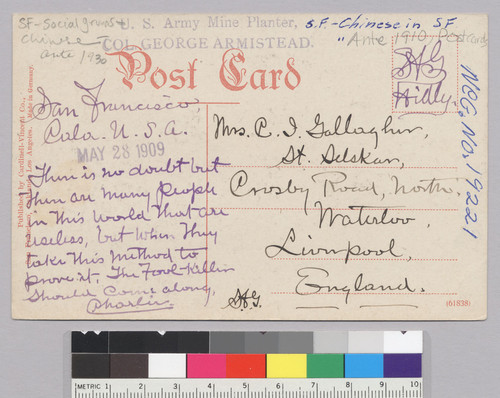 SF-Social groups
Chinese
ante 1930
U. S. Army Mine Planter,
COL. GEORGE ARMISTEAD.
S.F.-Chinese in SF
"Ante 1910 Postcards
Post Card
San Francisco,
Cala. U.S.A.
MAY 28 1909
There is no doubt but
there are many People
in this World that are
useless, but when they
take this method to
prove it, The Fool-killer
Should Come along,
Charlie
Published by Cardinell-Vincent Co.,
San Francisco, Oakland, Los Angeles. Made in Germany.
Mrs. C. J. Gallagher,
St. Selskar,
Crosby Road, North.
Waterloo,
Liverpool,
England.
(61838)
Neg. No. 19221
METRIC 1 2 3 4 5 6 7 8 9 10